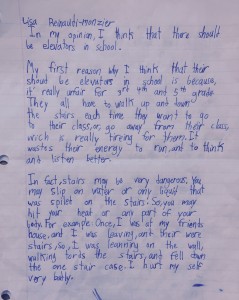 Lisa Reinaudi-monzier
In my opinion, I think that there should
be elevators in school.
My first reason why I think that their
shoulf be elevator in school is because,
it really unfair for 3rd 4th and 5th grade
They all have to walk up ant down
the stairs each time they want to go
to their class, or go away from their class,
wich is really tireing for them. It
wastes their energy to run, ant to think
ant listen better.
In fact, stairs may be very dangerous. You
may slip on water or any liquit that
was spilet on the stairs! So, you may
hit your heat or any part of your
body. For example: Once, I was at my friends
house, and I was leaving, ant their were
stairs, So, I was leanning on the wall,
walking tords the stairs, ant fell down
the one stair case. I hurt my self
very batly.